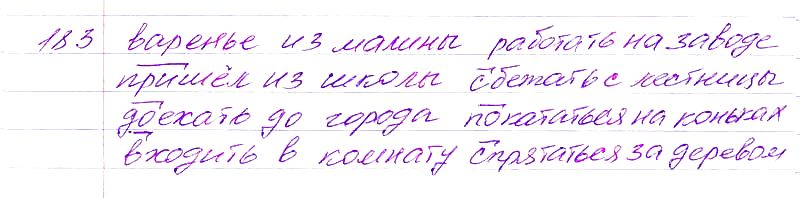 183 варенье из малины работать на заводе
пришёл из школы сбежать с лестницы
доехать до города покататься на коньках
входить в комнату спрятаться за деревом